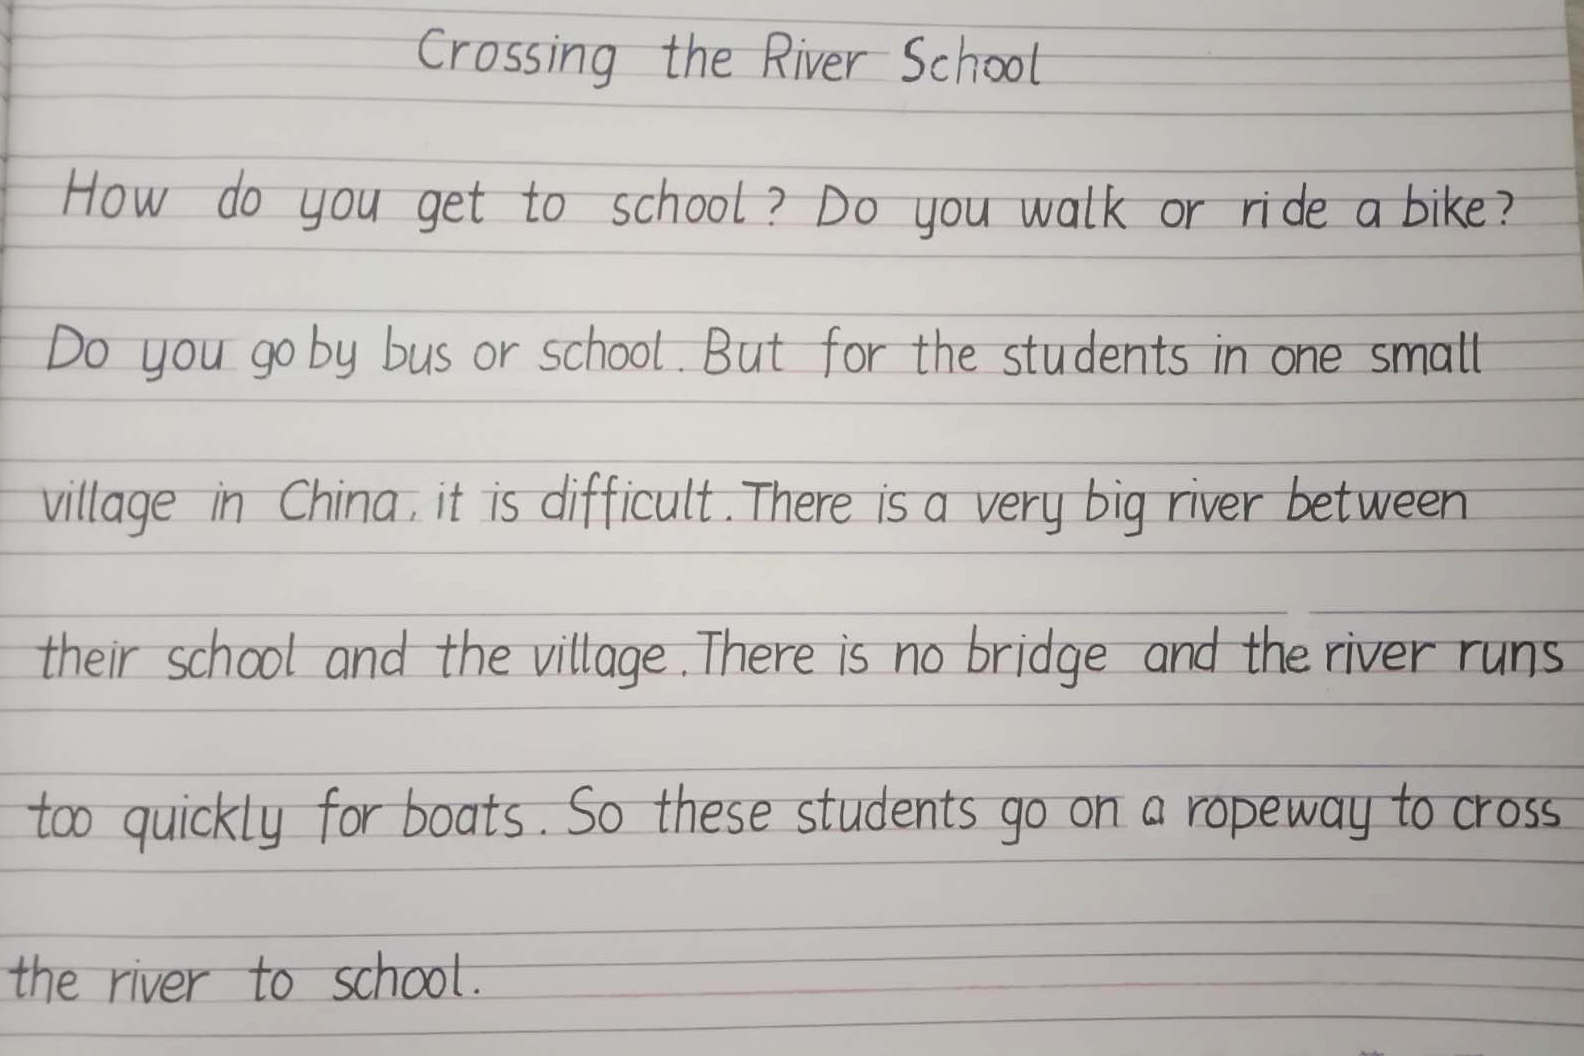 Crossing the River School
How do you get to school? Do you walk or ride a bike?
Do you go by bus or school. But for the students in one small
village in China, it is difficult. There is a very big river between
their school and the village. There is no bridge and the river runs
too quickly for boats. So these students go on a ropeway to cross
the river to school.